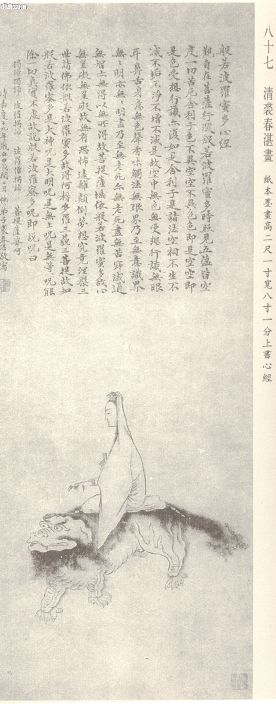 八十七　清裘春湛畫　紙本墨畫高二尺一寸寬八寸一分上書心經
般若波羅蜜多心經
觀自在菩薩行深般若波羅蜜多時照見五蘊皆空
度一切苦厄舍利子色不異空空不異色色即是空空即
是色受想行識亦復如是舍利子是諸法空相不生不
滅不垢不淨不增不減是故空中無色無受想行識無眼
耳鼻舌身意無色聲香味觸法無眼界乃至無意識界
無無明亦無無明盡乃至無老死亦無老死盡無苦集滅道
無智亦無得以無所得故菩提薩埵依般若波羅蜜多故心
無罣礙無罣礙故無有恐怖遠離顛倒夢想究竟涅槃三
世諸佛依般若波羅蜜多故得阿耨多羅三藐三菩提故知
般若波羅蜜多是大神咒是大明咒是無上咒是無等等咒能
除一切苦真實不虛故說般若波羅蜜多咒即說咒曰
揭諦揭諦　波羅揭諦　波羅僧揭諦　菩提薩婆訶